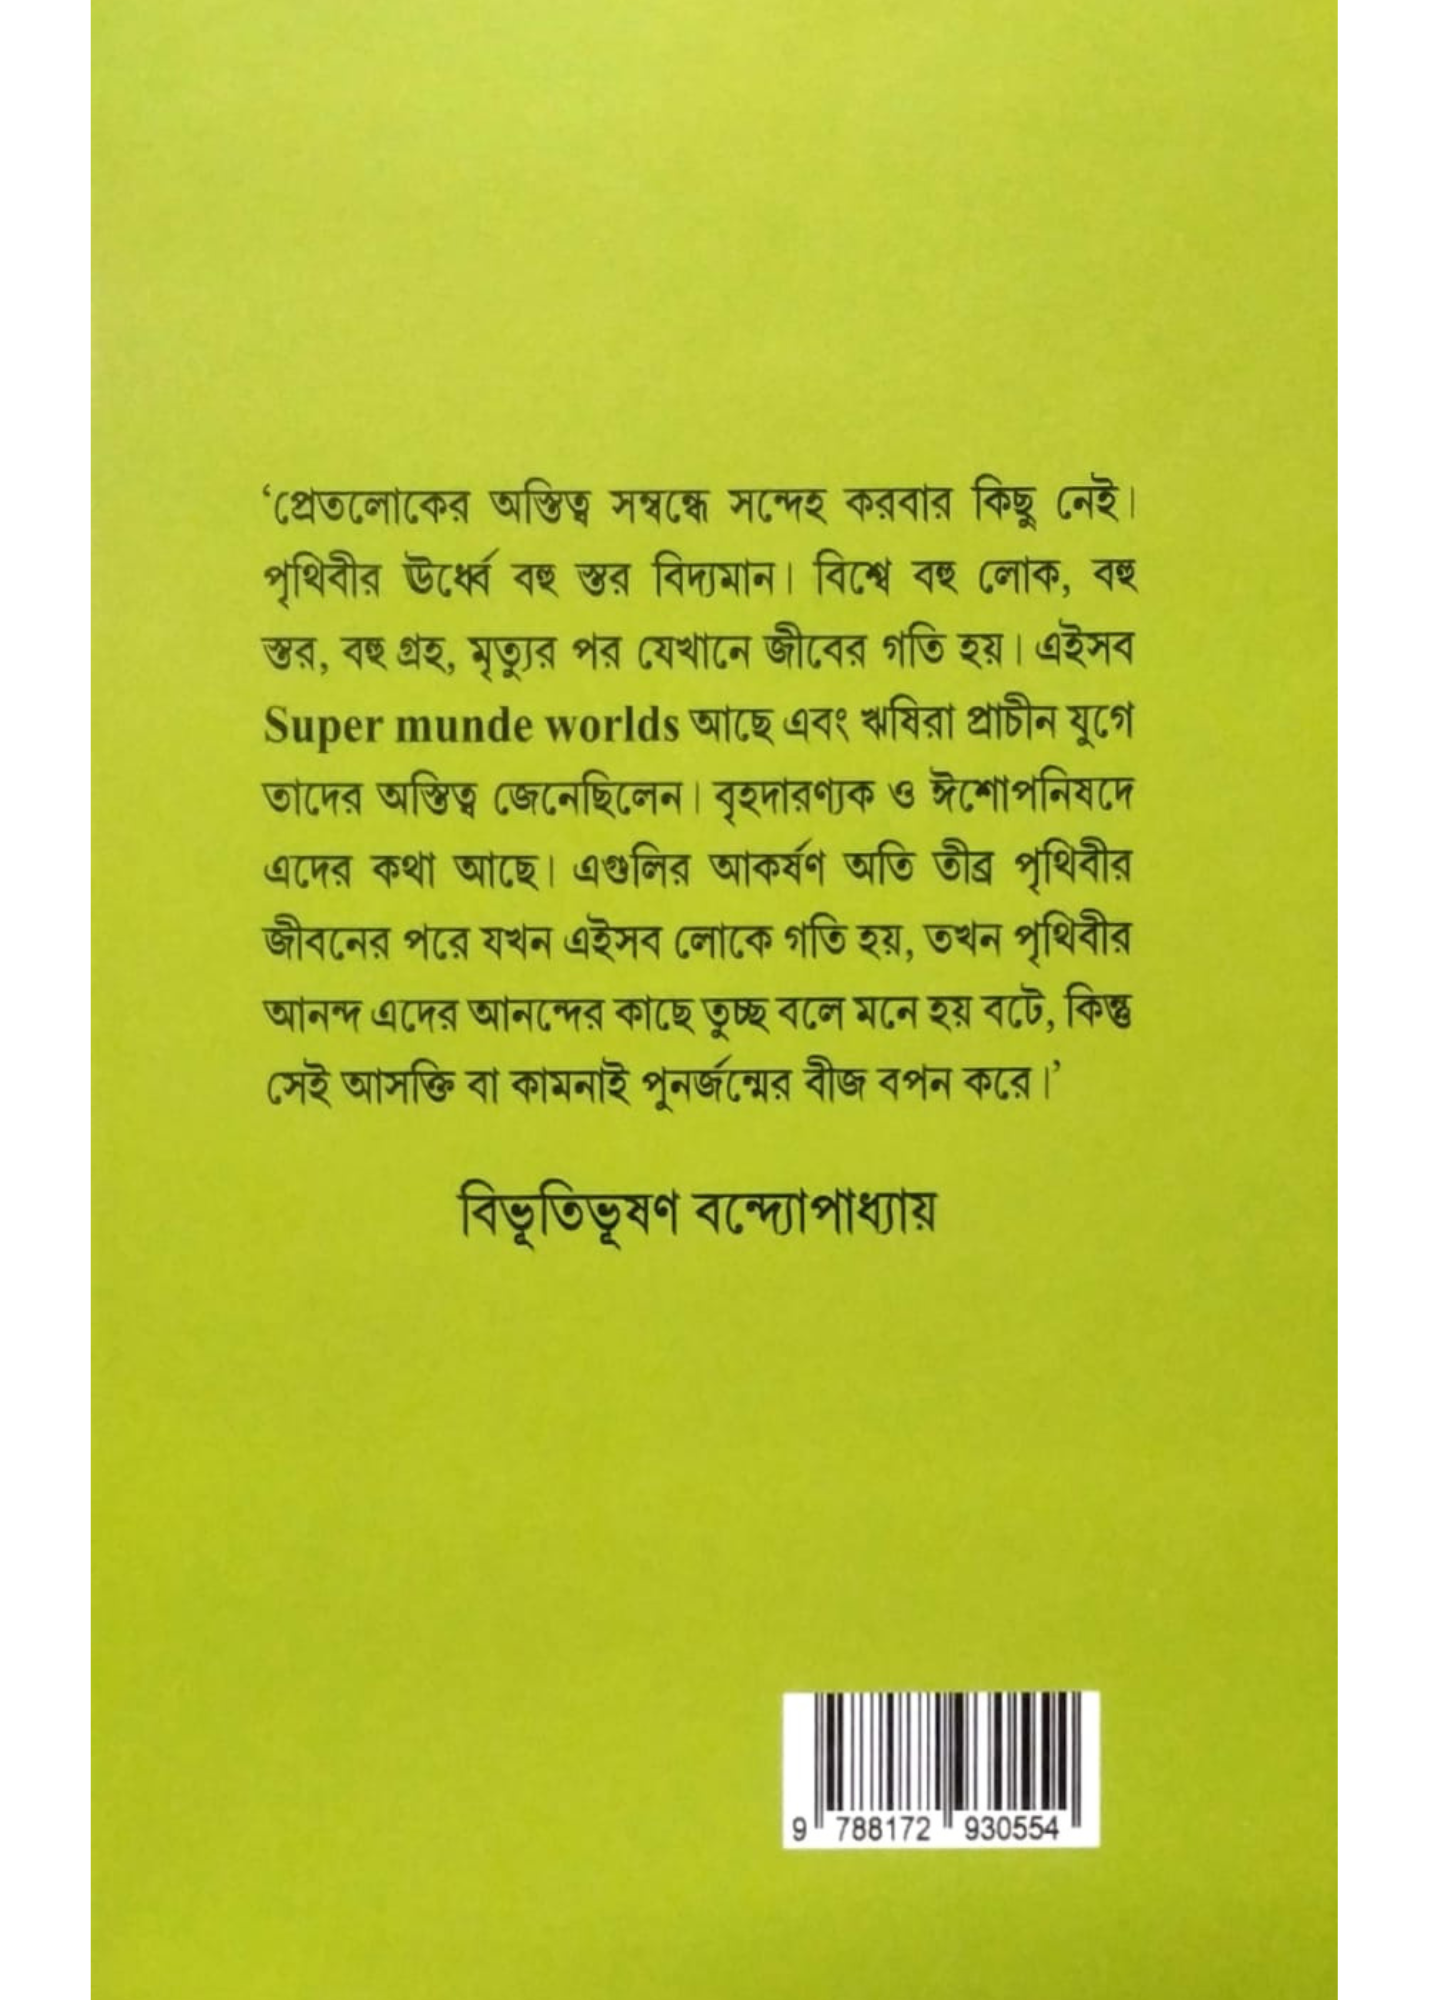 ‘প্রেতলোকের অস্তিত্ব সম্বন্ধে সন্দেহ করবার কিছু নেই।
পৃথিবীর ঊর্ধ্বে বহু স্তর বিদ্যমান। বিশ্বে বহু লোক, বহু
স্তর, বহু গ্রহ, মৃত্যুর পর যেখানে জীবের গতি হয়। এইসব
Super munde worlds আছে এবং ঋষিরা প্রাচীন যুগে
তাদের অস্তিত্ব জেনেছিলেন। বৃহদারণ্যক ও ঈশোপনিষদে
এদের কথা আছে। এগুলির আকর্ষণ অতি তীব্র পৃথিবীর
জীবনের পরে যখন এইসব লোকে গতি হয়, তখন পৃথিবীর
আনন্দ এদের আনন্দের কাছে তুচ্ছ বলে মনে হয় বটে, কিন্তু
সেই আসক্তি বা কামনাই পুনর্জন্মের বীজ বপন করে।’
বিভূতিভূষণ বন্দ্যোপাধ্যায়
9 788172 930554